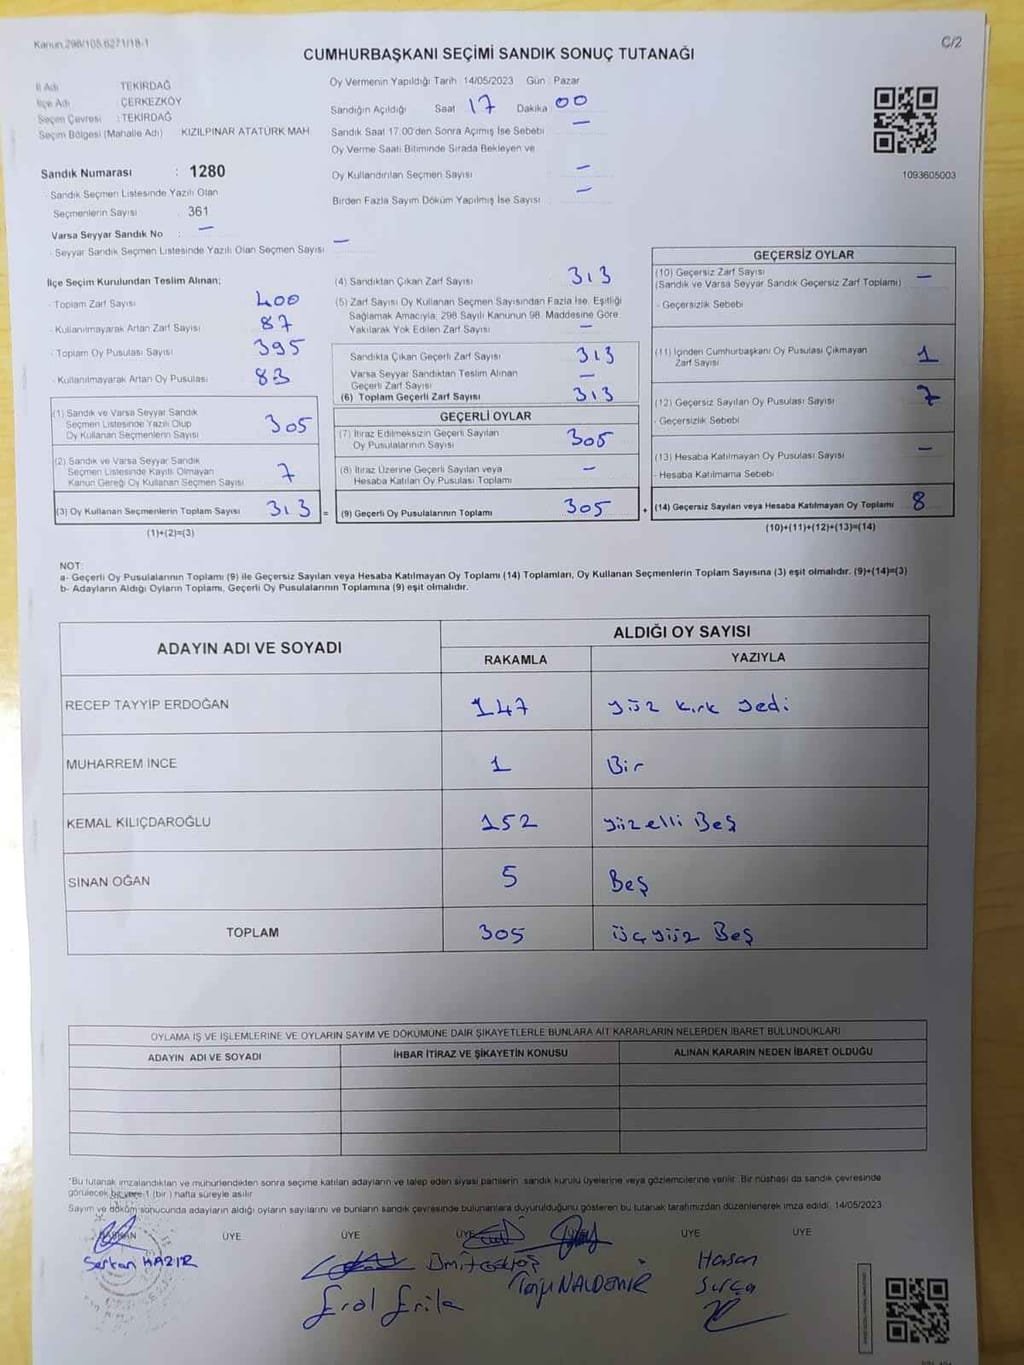 Kanun.298/105.6271/18-1
C/2
CUMHURBAŞKANI SEÇİMİ SANDIK SONUÇ TUTANAĞI
İl Adı TEKİRDAĞ
İlçe Adı : ÇERKEZKÖY
Seçim Çevresi : TEKİRDAĞ
Seçim Bölgesi (Mahalle Adı) KIZILPINAR ATATÜRK MAH
Sandık Numarası : 1280
- Sandık Seçmen Listesinde Yazılı Olan
Seçmenlerin Sayısı : 361
Varsa Seyyar Sandık No : —
- Seyyar Sandık Seçmen Listesinde Yazılı Olan Seçmen Sayısı —
Oy Vermenin Yapıldığı Tarih 14/05/2023 Gün : Pazar
Sandığın Açıldığı Saat 17 Dakika 00
Sandık Saat 17.00'den Sonra Açımış İse Sebebi —
Oy Verme Saati Bitiminde Sırada Bekleyen ve
Oy Kullandırılan Seçmen Sayısı —
Birden Fazla Sayım Döküm Yapılmış İse Sayısı —
1093605003
İlçe Seçim Kurulundan Teslim Alınan;
- Toplam Zarf Sayısı 400
- Kullanılmayarak Artan Zarf Sayısı 87
- Toplam Oy Pusulası Sayısı 395
- Kullanılmayarak Artan Oy Pusulası 83
(1) Sandık ve Varsa Seyyar Sandık
Seçmen Listesinde Yazılı Olup
Oy Kullanan Seçmenlerin Sayısı 305
(2) Sandık ve Varsa Seyyar Sandık
Seçmen Listesinde Kayıtlı Olmayan
Kanun Gereği Oy Kullanan Seçmen Sayısı 7
(3) Oy Kullanan Seçmenlerin Toplam Sayısı 313 =
(1)+(2)=(3)
(4) Sandıktan Çıkan Zarf Sayısı 313
(5) Zarf Sayısı Oy Kullanan Seçmen Sayısından Fazla İse, Eşitliği
Sağlamak Amacıyla, 298 Sayılı Kanunun 98. Maddesine Göre
Yakılarak Yok Edilen Zarf Sayısı —
Sandıkta Çıkan Geçerli Zarf Sayısı 313
Varsa Seyyar Sandıktan Teslim Alınan
Geçerli Zarf Sayısı —
(6) Toplam Geçerli Zarf Sayısı 313
GEÇERLİ OYLAR
(7) İtiraz Edilmeksizin Geçerli Sayılan
Oy Pusulalarının Sayısı 305
(8) İtiraz Üzerine Geçerli Sayılan veya
Hesaba Katılan Oy Pusulası Toplamı —
(9) Geçerli Oy Pusulalarının Toplamı 305 +
GEÇERSİZ OYLAR
(10) Geçersiz Zarf Sayısı
(Sandık ve Varsa Seyyar Sandık Geçersiz Zarf Toplamı) —
- Geçersizlik Sebebi
(11) İçinden Cumhurbaşkanı Oy Pusulası Çıkmayan
Zarf Sayısı 1
(12) Geçersiz Sayılan Oy Pusulası Sayısı 7
- Geçersizlik Sebebi
(13) Hesaba Katılmayan Oy Pusulası Sayısı —
- Hesaba Katılmama Sebebi
(14) Geçersiz Sayılan veya Hesaba Katılmayan Oy Toplamı 8
(10)+(11)+(12)+(13)=(14)
NOT:
a- Geçerli Oy Pusulalarının Toplamı (9) ile Geçersiz Sayılan veya Hesaba Katılmayan Oy Toplamı (14) Toplamları, Oy Kullanan Seçmenlerin Toplam Sayısına (3) eşit olmalıdır. (9)+(14)=(3)
b- Adayların Aldığı Oyların Toplamı, Geçerli Oy Pusulalarının Toplamına (9) eşit olmalıdır.
ADAYIN ADI VE SOYADI
ALDIĞI OY SAYISI
RAKAMLA YAZIYLA
RECEP TAYYİP ERDOĞAN 147 yüz kırk yedi
MUHARREM İNCE 1 Bir
KEMAL KILIÇDAROĞLU 152 yüzelli Beş
SİNAN OĞAN 5 Beş
TOPLAM 305 üçyüz Beş
OYLAMA İŞ VE İŞLEMLERİNE VE OYLARIN SAYIM VE DÖKÜMÜNE DAİR ŞİKAYETLERLE BUNLARA AİT KARARLARIN NELERDEN İBARET BULUNDUKLARI
ADAYIN ADI VE SOYADI İHBAR İTİRAZ VE ŞİKAYETİN KONUSU ALINAN KARARIN NEDEN İBARET OLDUĞU
*Bu tutanak imzalandıktan ve mühürlendikten sonra seçime katılan adayların ve talep eden siyasi partilerin sandık kurulu üyelerine veya gözlemcilerine verilir. Bir nüshası da sandık çevresinde
görülecek bir yere 1 (bir) hafta süreyle asılır
Sayım ve döküm sonucunda adayların aldığı oyların sayılarını ve bunların sandık çevresinde bulunanlara duyurulduğunu gösteren bu tutanak tarafımızdan düzenlenerek imza edildi. 14/05/2023
ÜYE ÜYE ÜYE ÜYE ÜYE
Serkan HAZIR
Hasan
Erol
NALDEMİR